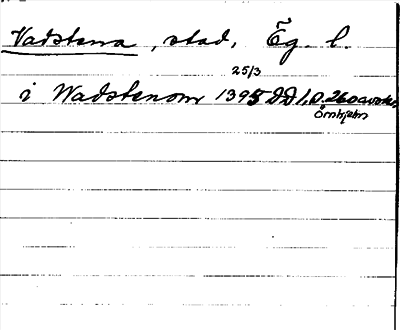 Vadstena, stad, Ög. l.
25/3
i Wadstenom 1395 DD 1, D. 260 avskr.
Örnhjelm